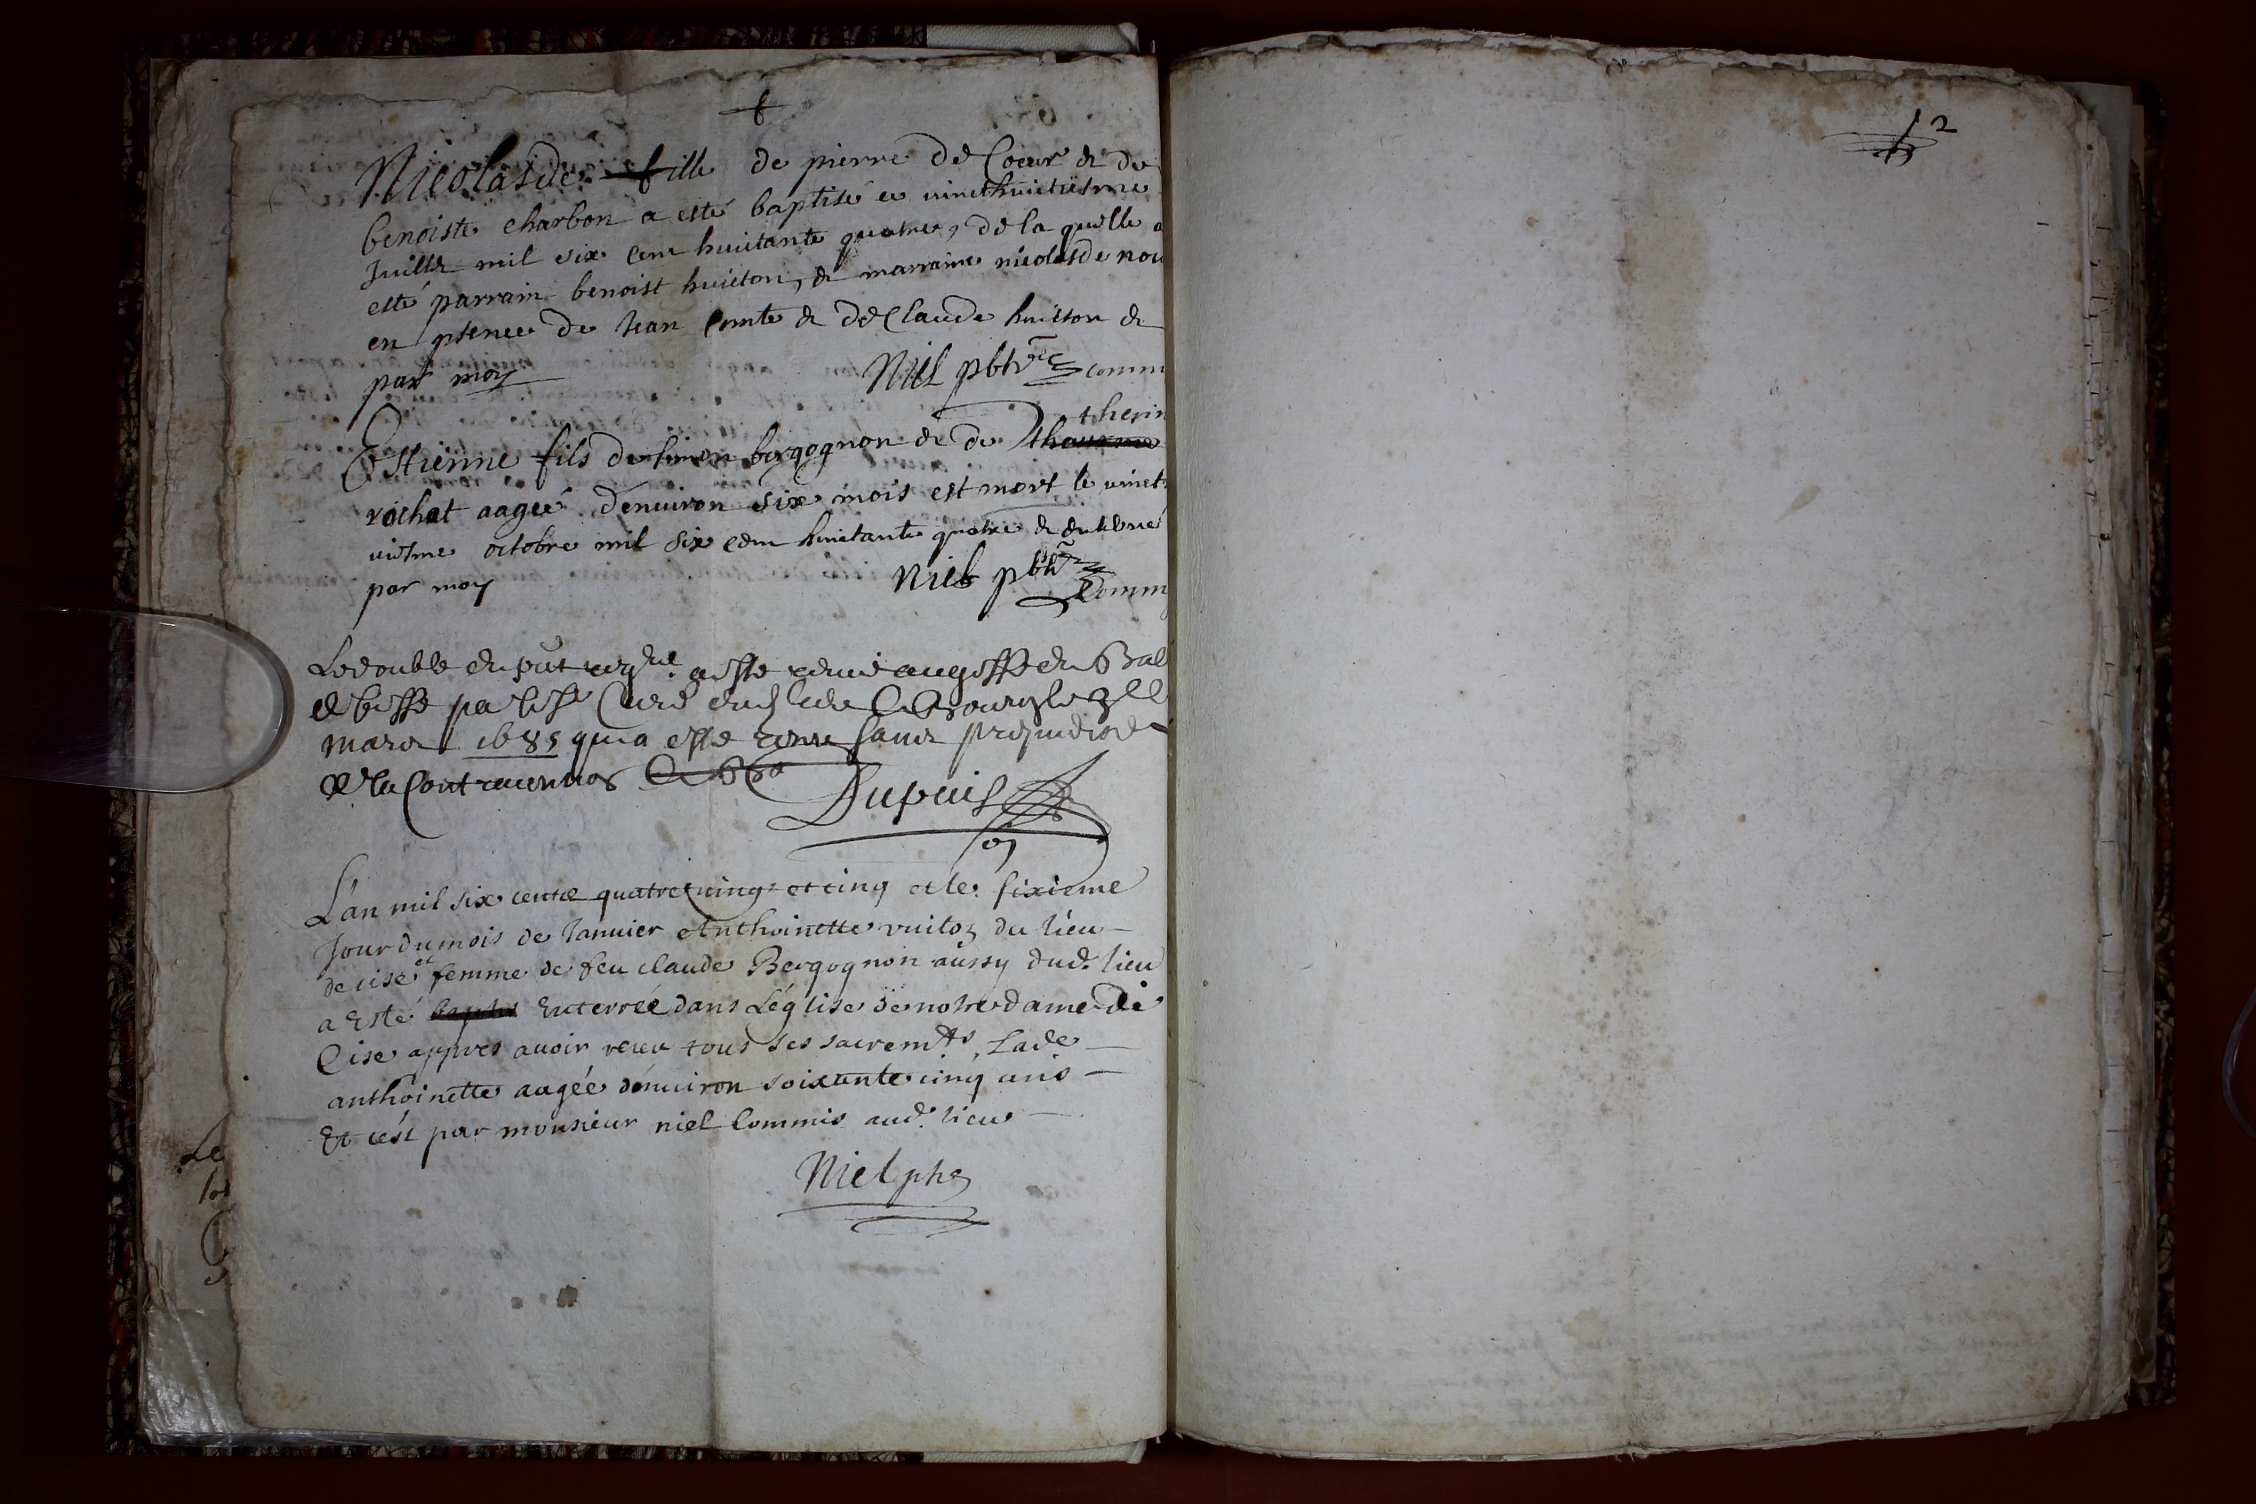 Nicolasde fille de pierre de Coeur & de
benoiste charbon a esté baptisé ce vinethuictiesme
Juillet mil six cent huictante quatre, de la quelle a
esté parrain benoist huicton, & marraine nicolasde nou
en psence de Jean Comte & de Claude huitton &
par moy Niel pbtre comm
therin
Estienne fils de simon bergognon & de thauxme
rochat aagée denuiron six mois est mort le vinct
uiesme octobre mil six cent huictante quatre & enterré
par moy Niel pbtre Comm
Le double du pnt a esté au greffe du Bal
de par Curé dud
mars 1685 qui a esté sans prejudice
de la Contrauention
Dupuis
L'an mil six cents quatre uing et cinq et le sixieme
Jour du mois de Januier Anthoinette vuitoz du lieu
de cise et femme de feu claude Bergognon aussy dud. lieu
a Esté baptis Enterrée dans L'église de notre dame de
Cise appres auoir receu tous ses sacremts, Lade
anthoinette aagée d'enuiron soixante cinq ans
Et c'ést par monsieur niel Commis aud. lieu
Niel pbre
12
Le